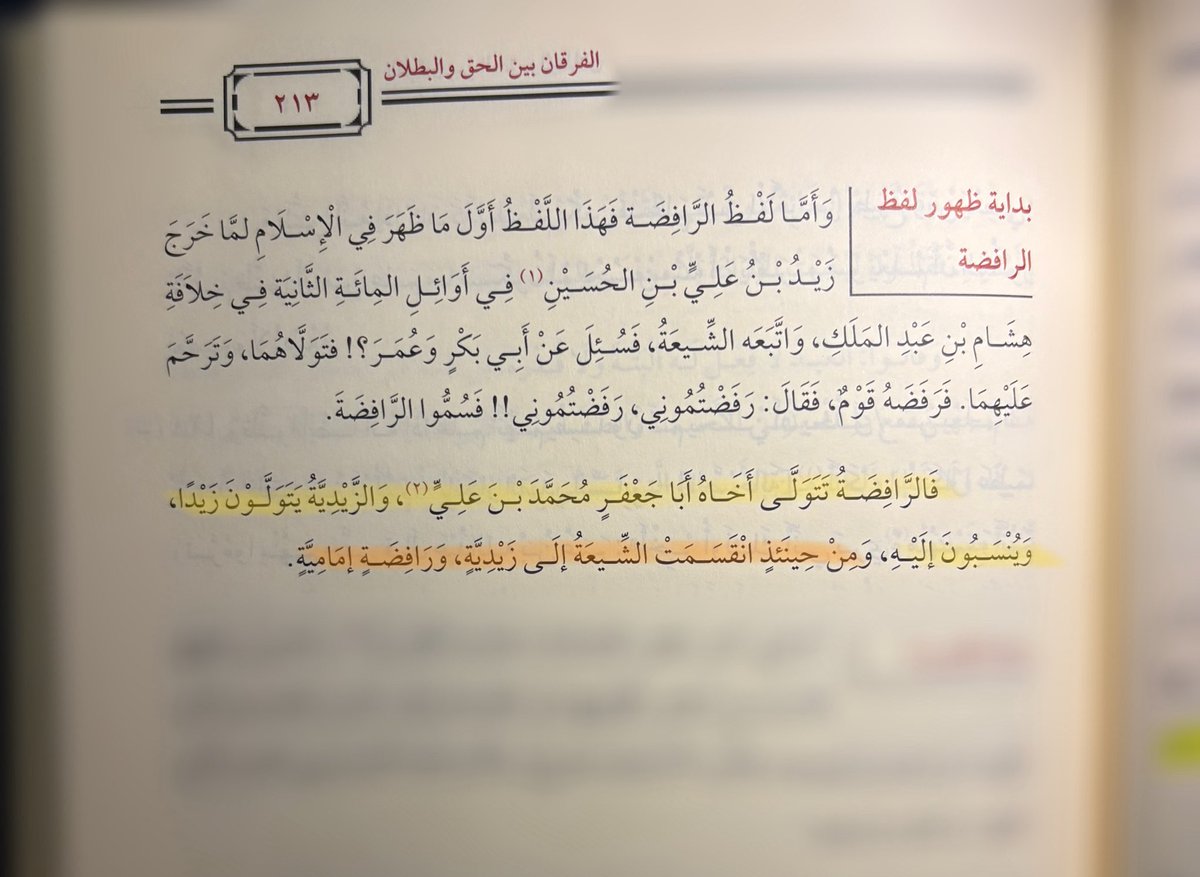 الفرقان بين الحق والبطلان
٢١٣
بداية ظهور لفظ
الرافضة
وَأَمَّا لَفْظُ الرَّافِضَة فَهَذَا اللَّفْظُ أَوَّلَ مَا ظَهَرَ فِي الْإِسْلَامِ لمَّا خَرَجَ
زَيْدُ بْنُ عَلِيِّ بْنِ الحُسَيْنِ(١) فِي أَوَائِلِ المِائَةِ الثَّانِيَة فِي خِلَافَةِ
هِشَامِ بْنِ عَبْدِ المَلَكِ، وَاتَّبَعَه الشِّيعَةُ، فَسُئِلَ عَنْ أَبِي بَكْرٍ وَعُمَرَ؟! فتَوَلَّاهُمَا، وَتَرَحَّمَ
عَلَيْهِمَا. فَرَفَضَهُ قَوْمٌ، فَقَالَ: رَفَضْتُمُونِي، رَفَضْتُمُونِي!! فَسُمُّوا الرَّافِضَةَ.
فَالرَّافِضَةُ تَتَوَلَّى أَخَاهُ أَبَا جَعْفَرٍ مُحَمَّدَ بْنَ عَلِيٍّ(٢)، وَالزَّيْدِيَّةُ يَتَوَلَّوْنَ زَيْدًا،
وَيُنْسَبُونَ إلَيْهِ، وَمِنْ حِينَئذٍ انْقَسَمَتْ الشِّيعَةُ إلَى زَيْدِيَّةٍ، وَرَافِضَةٍ إمَامِيَّةٍ.